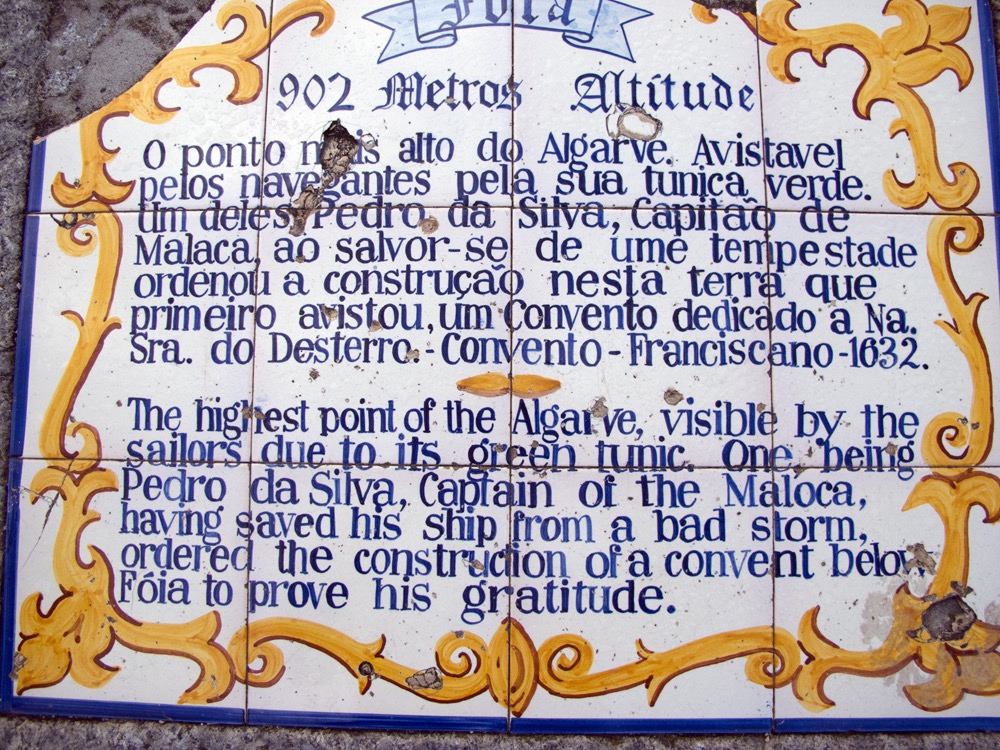 Fóia
902 Metros Altitude
O ponto mais alto do Algarve. Avistavel
pelos navegantes pela sua tunica verde.
Um deles, Pedro da Silva, Capitão de
Malaca, ao salvor-se de ume tempestade
ordenou a construção nesta terra que
primeiro avistou, um Convento dedicado a Na.
Sra. do Desterro. - Convento - Franciscano - 1632.
The highest point of the Algarve, visible by the
sailors due to its green tunic. One, being
Pedro da Silva, Captain of the Maloca,
having saved his ship from a bad storm,
ordered the construction of a convent below
Fóia to prove his gratitude.